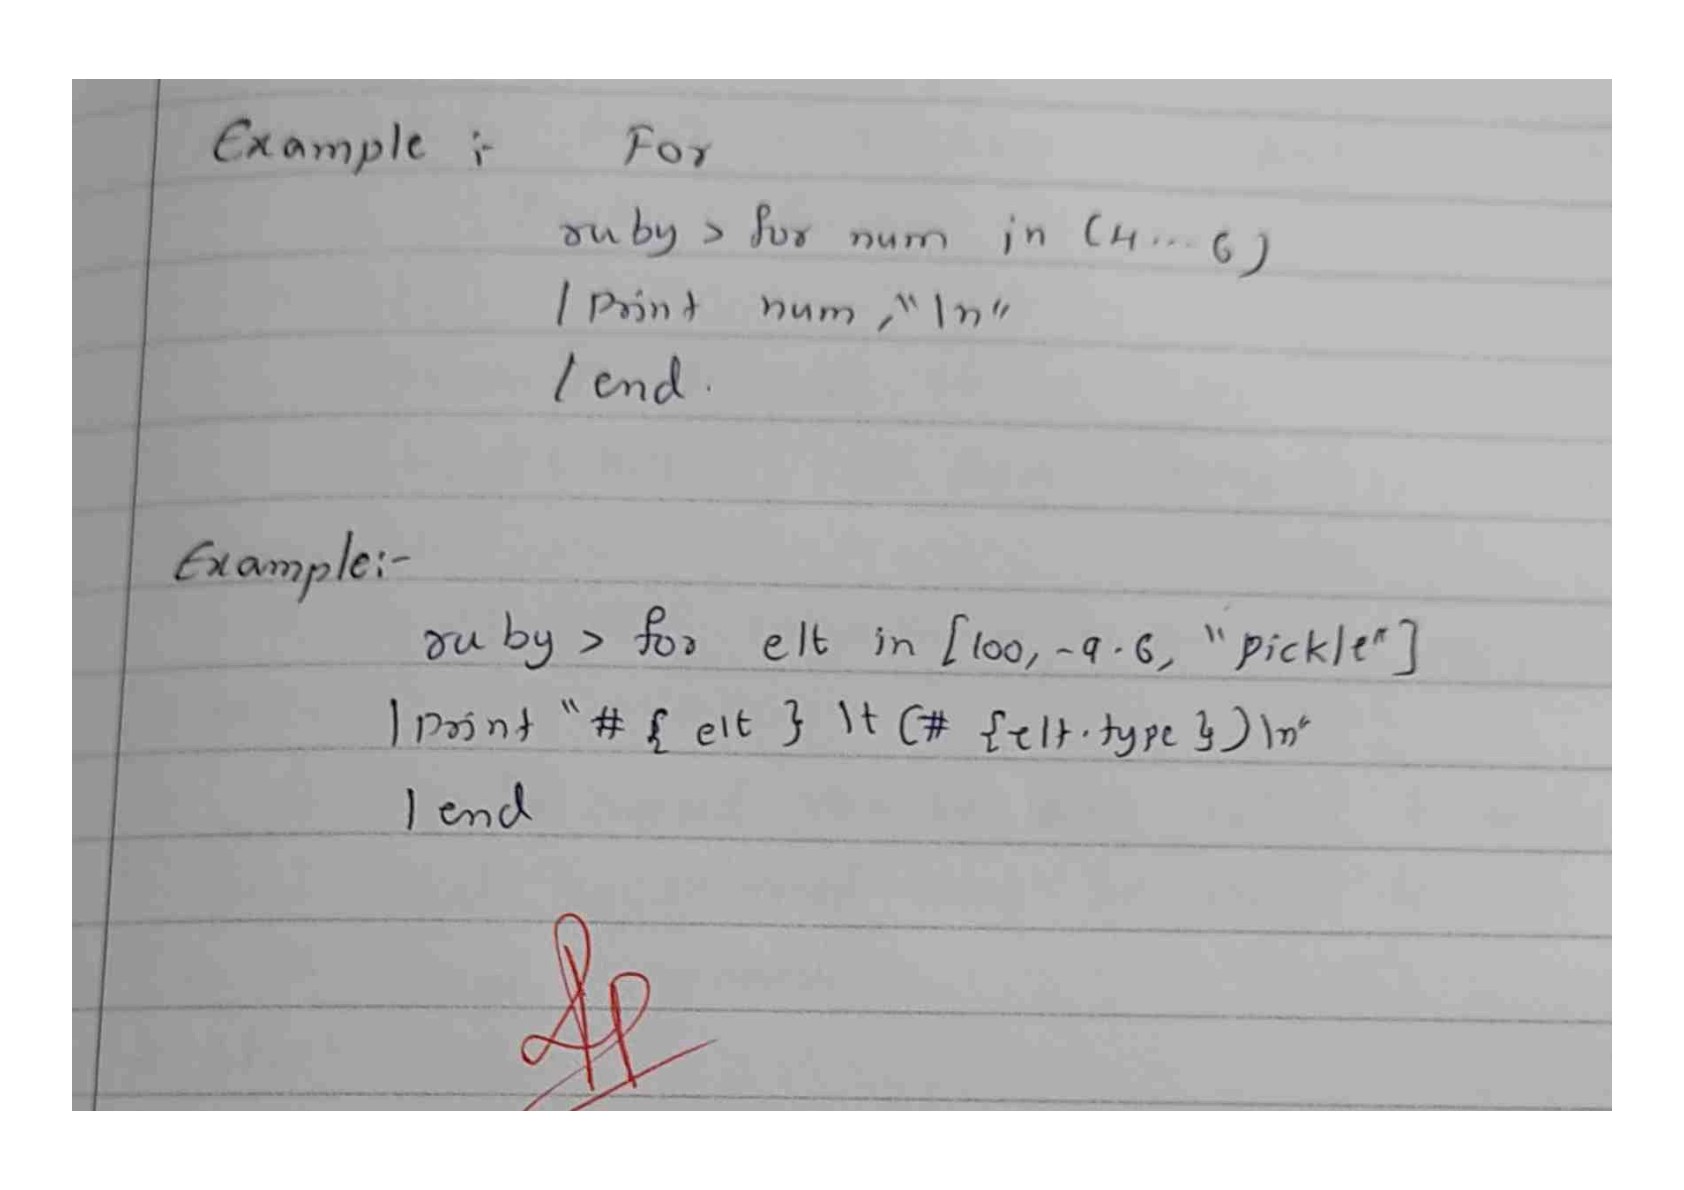 Example :- For
ruby > for num in (4...6)
| print num, "\n"
| end.
Example:-
ruby > for elt in [100, -9.6, "pickle"]
| print "# { elt } \t (# {elt.type })\n"
| end